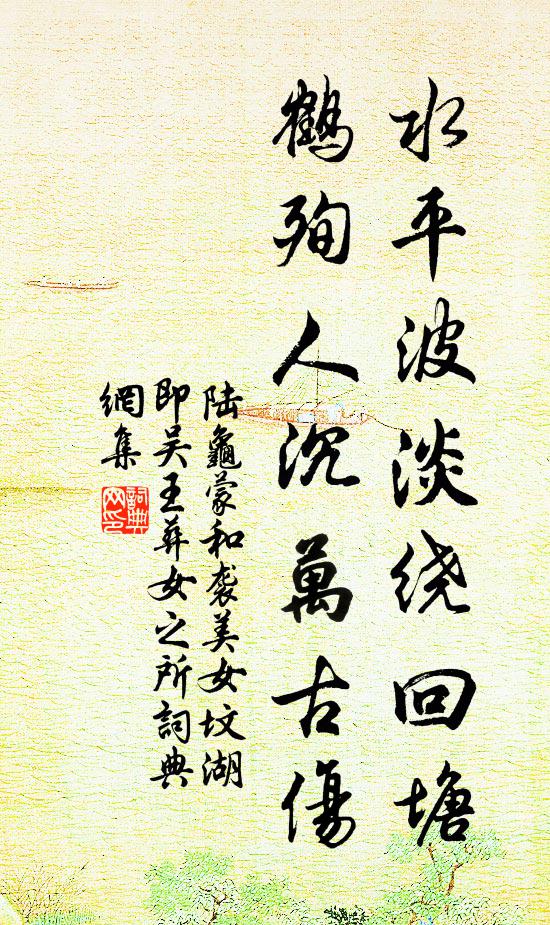 水平波淡绕回塘
鹤殉人沉萬古傷
陆龜蒙和袭美女坟湖
即吴王葬女之所詞典
網集
詞典
网印